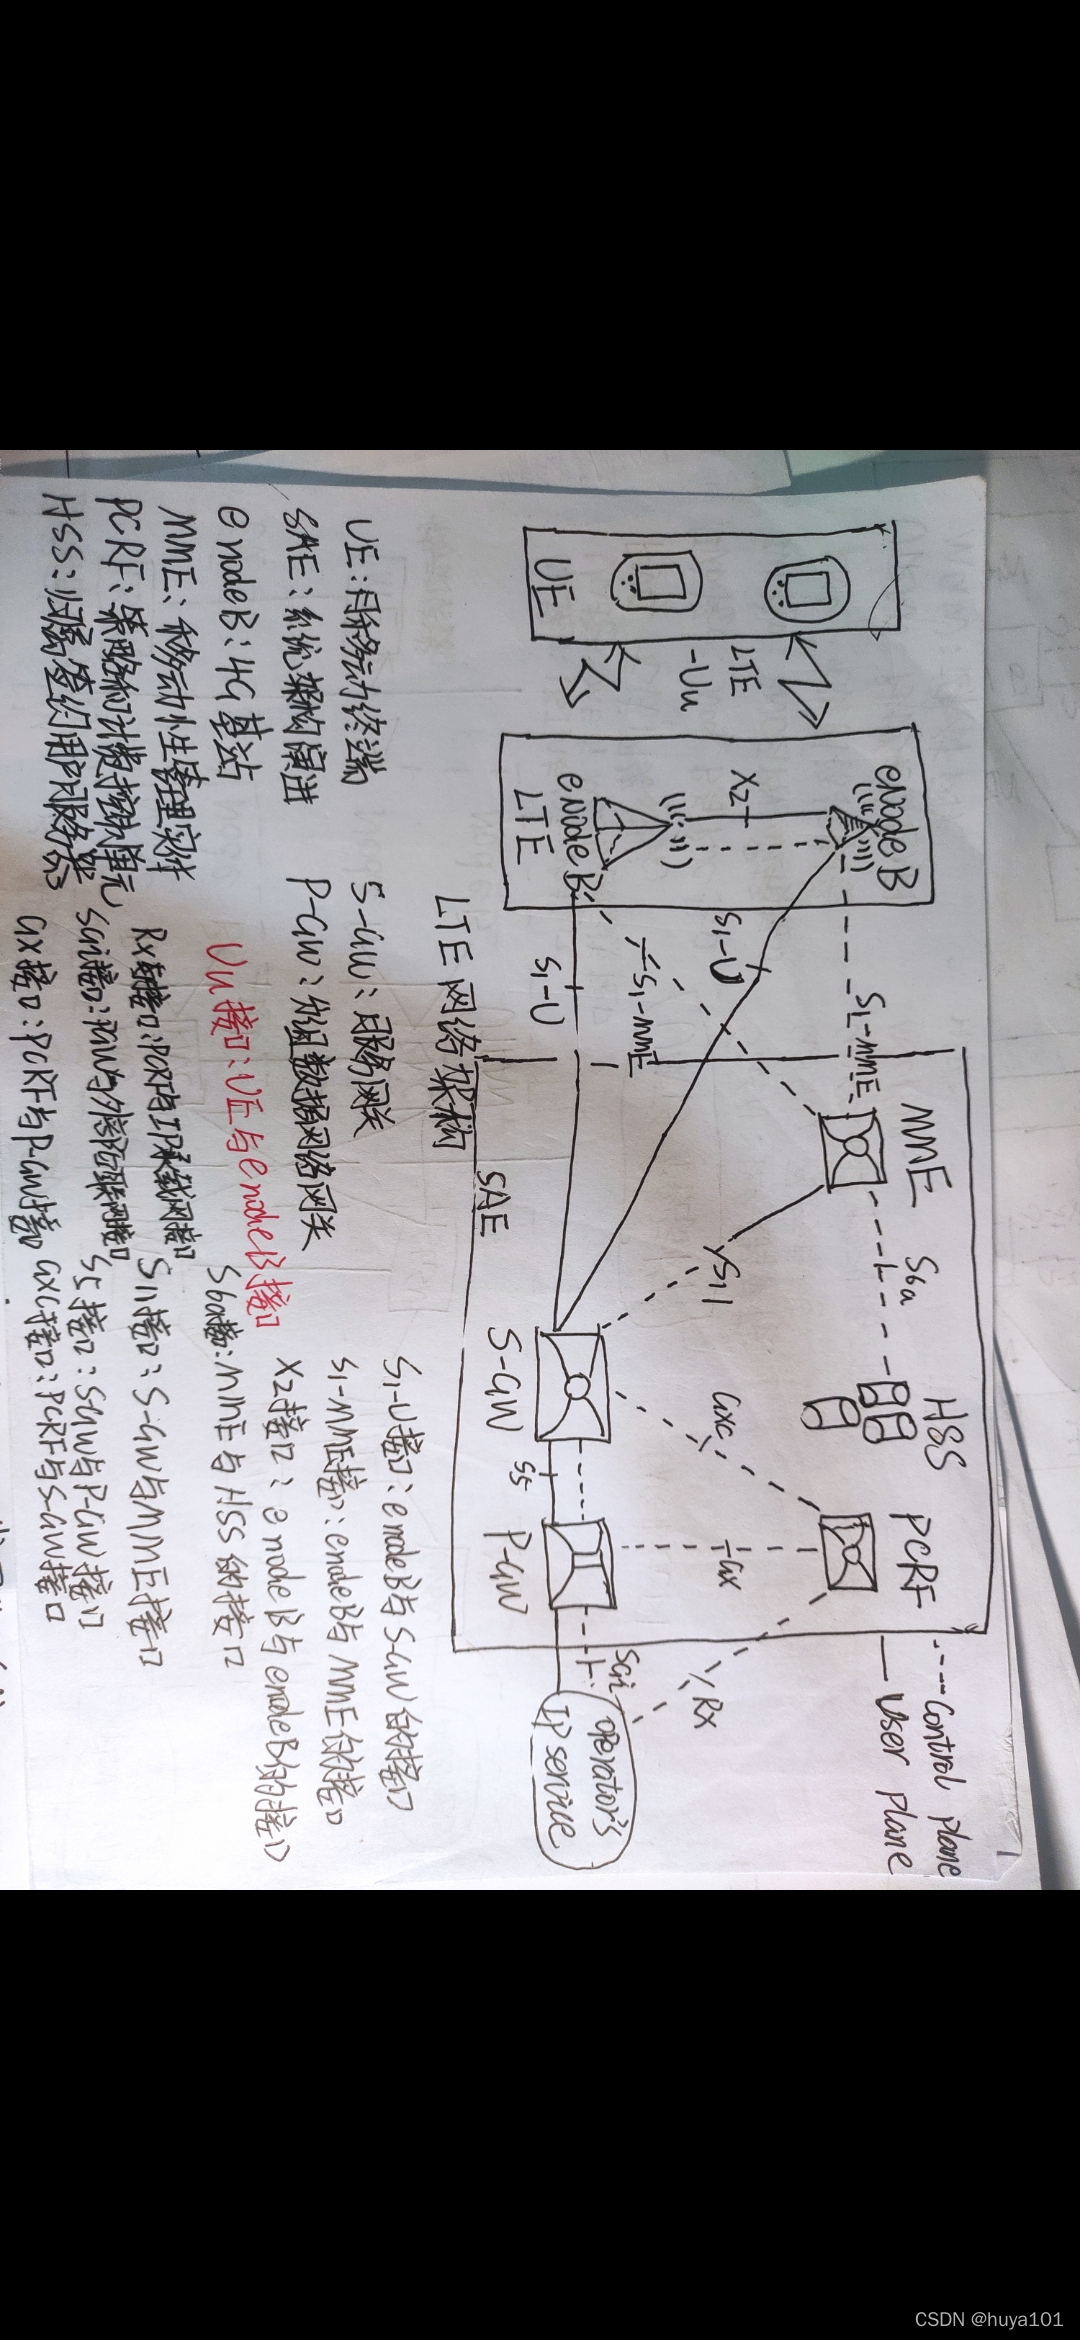 ---- Control plane
—— User plane
enode B
S1-MME
MME
S6a
HSS
PCRF
LTE
-Uu
X2
S1-U
S1-MME
S11
Gxc
Gx
Rx
UE
enode B
LTE
S1-U
SAE
S-GW
S5
P-GW
SGi
operator's
IP service
LTE网络架构
UE:移动终端
S-GW:服务网关
S1-U接口:enodeB与S-GW的接口
SAE:系统架构演进
P-GW:分组数据网络网关
S1-MME接口:enodeB与MME的接口
enodeB:4G基站
Uu接口:UE与enodeB接口
X2接口:enodeB与enodeB的接口
MME:移动性管理实体
Rx接口:PCRF与IP承载网接口
S6a接口:MME与HSS的接口
PCRF:策略和计费控制单元
SGi接口:PGW与外部互联网接口
S11接口:S-GW与MME接口
HSS:归属签约用户服务器
Gx接口:PCRF与P-GW接口
S5接口:SGW与P-GW接口
GXC接口:PCRF与S-GW接口
CSDN @huya101